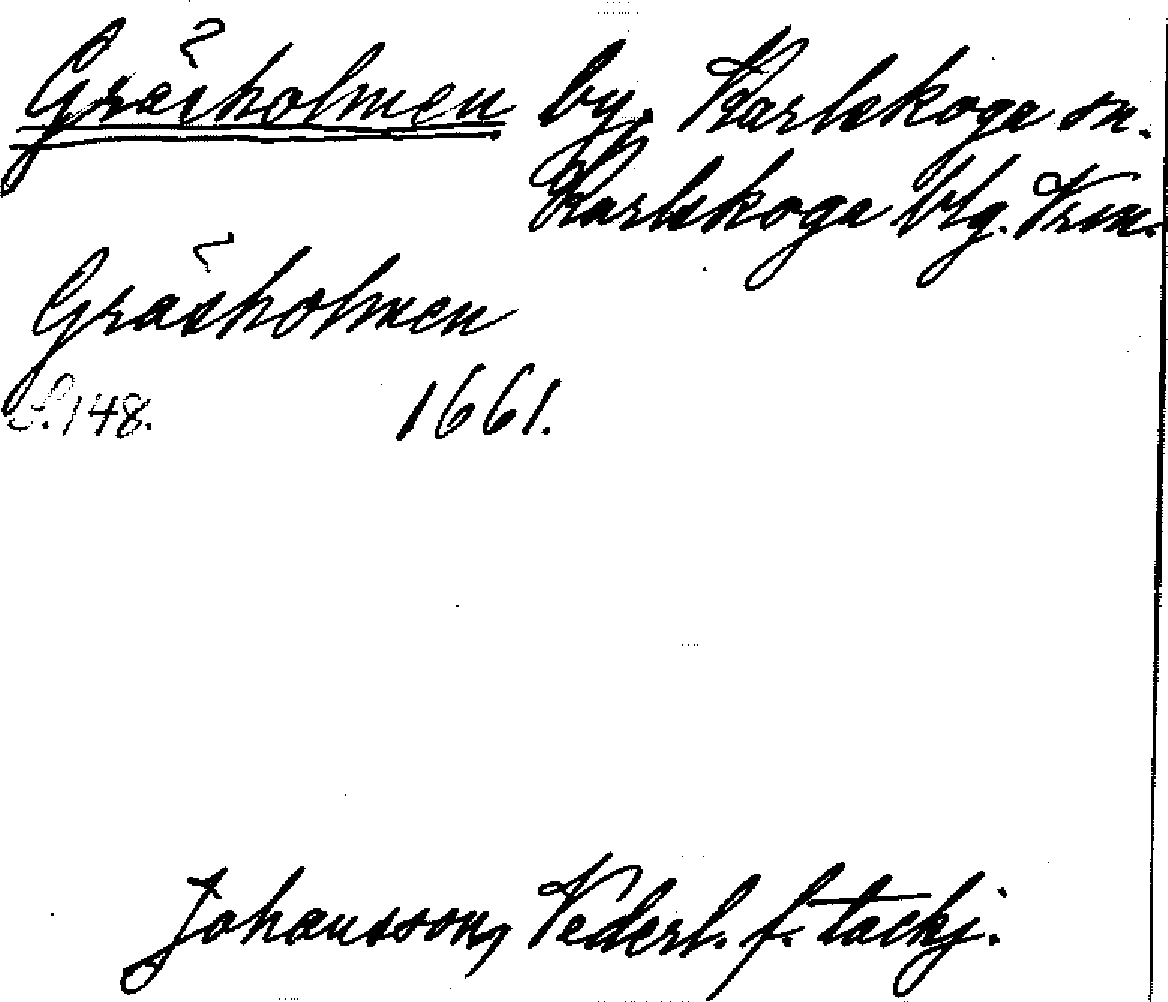 Gråsholmen by, Karlskoga sn.
Karlskoga blg. Vrm.
Gråsholmen
S. 148. 1661.
Johansson, Vederl. f. tackj.